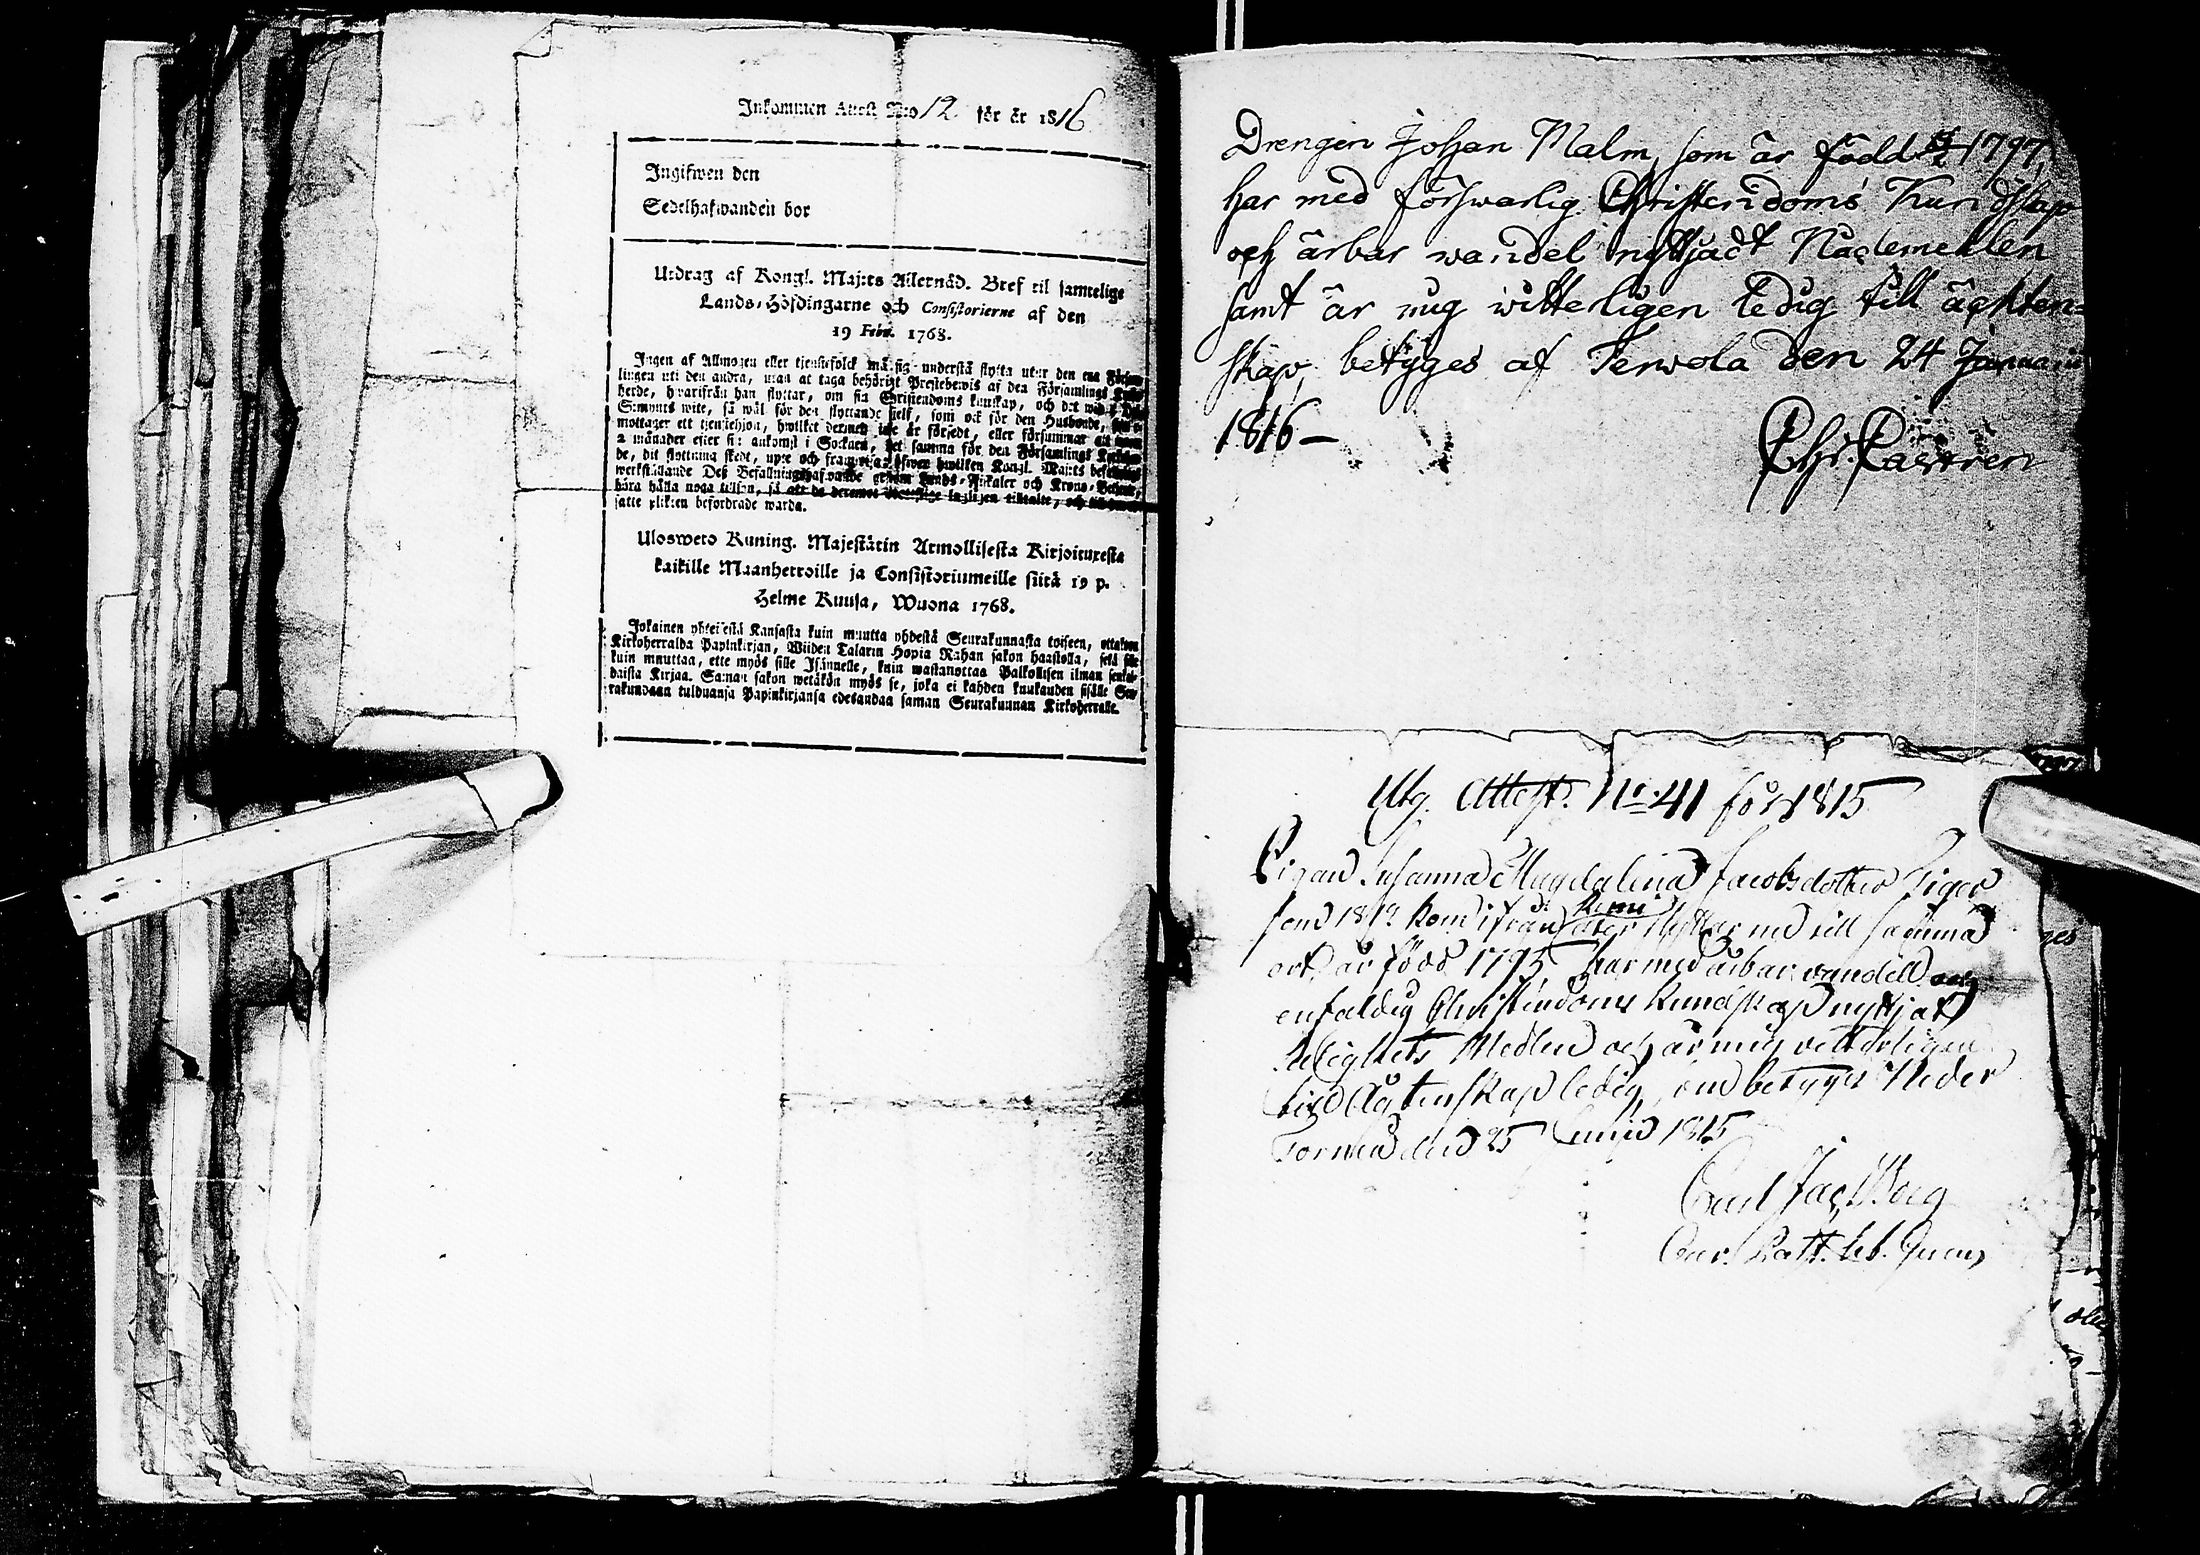 Inkommen Attest N:o 12 för år 1816
Ingifwen den
Sedelhafwanden bor
Utdrag af Kongl. Maj:ts Allernåd. Bref til samtelige
Lands-Höfdingarne och Consistorierne af den
19 Febr. 1768.
Ingen af Allmogen eller tjenstefolck må sig understå flytta utur den ena Försam-
lingen uti den andra, utan at taga behörigt Prestebewis af den Församlings Kyrko-
herde, hwarifrån han flyttar, om sin Christendoms kunskap, och det wid 5 Dal.
S:mynts wite, så wäl för den flyttande sielf, som ock för den Husbonde, som e-
mottager ett tjenstehjon, hwilket dermed icke är försedt, eller försummar att inom
2 månader efter sin ankomst i Socknen, det samma för den Församlings Kyrkoher-
de, dit flyttning skedt, upte och framwisa; öfwer hwilken Kongl. Maj:ts befallnings
werkställande Deß Befallningshafwande genom Lands-Fiskaler och Krono-Betjente,
böra hålla noga tillsyn, så att de deremot
satte plikten befordrade warda.
Ulosweto Kuning. Majestätin Armollisesta Kirjoituxesta
kaikille Maanherroille ja Consistoriumeille siitä 19 p.
Helme Kuusa, Wuona 1768.
Jokainen yhteisestä Kansasta kuin muutta yhdestä Seurakunnasta toiseen, ottakoon
Kirkoherralda Papinkirjan, Wiiden Talarin Hopia Rahan sakon haastolla, sekä sille
kuin muuttaa, ette myös sille Isännelle, kuin wastanottaa Palkollisen ilman senkal-
daista Kirjaa. Saman sakon wetäkön myös se, joka ei kahden kuukauden sisälle Seu-
rakundaan tulduansa Papinkirjansa edesandaa saman Seurakunnan Kirkoherralle.
Drengen Johan Malm, som är född 1797,
har med förswarlig Christendoms Kundskap
och ärbar wandel nyttjadt Nådemedlen
samt är mig witterligen ledig till äckten-
skap, betyges af Terwola den 24 Januarii
1816 –
Chr. Castrén
Utg. Attest. N:o 41 för 1815
Pigan Susanna Magdalena Jacobsdotter Tiger
som 181 kom ifrån Kemi åter flyttar nu till samma
ort, är född 1795, har med ärbar wandel och
enfaldig Christendoms Kundskap nyttjat
Salighets Medlen och är mig vitterligen
till Ägtenskap ledig, som betygas Neder
Torneå den 25 Junii 1815
Carl Jac. Borg